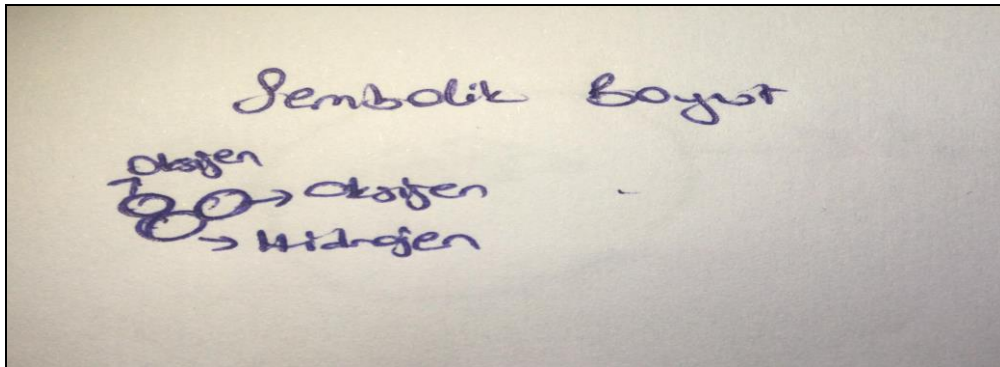 Sembolik Boyut
Oksijen
Oksijen
Hidrojen